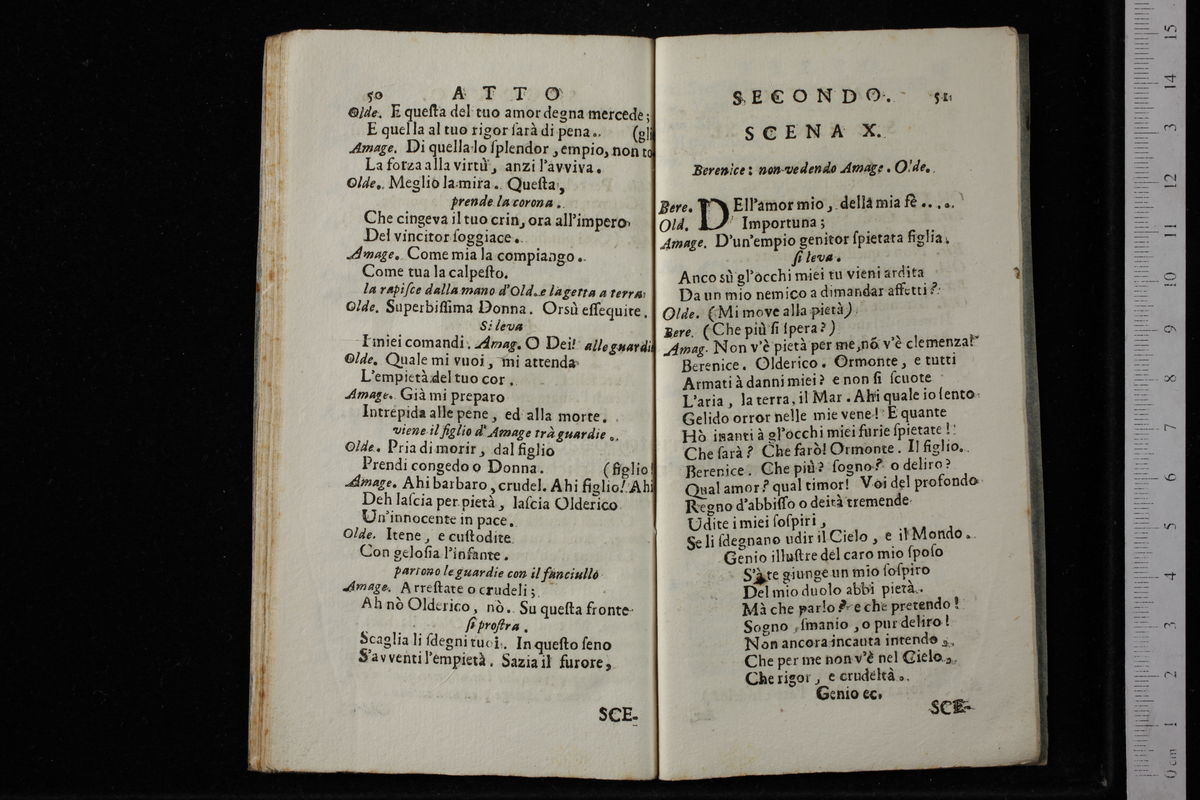 50 ATTO
Olde. E queſta del tuo amor degna mercede;
E quella al tuo rigor ſarà di pena. (gli
Amage. Di quella lo ſplendor, empio, non to
La forza alla virtù, anzi l'avviva.
Olde. Meglio la mira. Queſta,
prende la corona.
Che cingeva il tuo crin, ora all'impero
Del vincitor ſoggiace.
Amage. Come mia la compiango.
Come tua la calpeſto.
la rapiſce dalla mano d'Old. e la getta a terra
Olde. Superbiſſima Donna. Orsù eſſequite.
Si leva
I miei comandi. Amag. O Dei! alle guardi
Olde. Quale mi vuoi, mi attenda
L'empietà del tuo cor.
Amage. Già mi preparo
Intrepida alle pene, ed alla morte.
viene il figlio d'Amage trà guardie.
Olde. Pria di morir, dal figlio
Prendi congedo o Donna. (figlio!
Amage. Ahi barbaro, crudel. Ahi figlio! Ahi
Deh laſcia per pietà, laſcia Olderico
Un'innocente in pace.
Olde. Itene, e cuſtodite
Con geloſia l'infante.
partono le guardie con il fanciullo
Amage. Arreſtate o crudeli;
Ah nò Olderico, nò. Su queſta fronte
ſi proſtra.
Scaglia li ſdegni tuoi. In queſto ſeno
S'avventi l'empietà. Sazia il furore,
SCE-
SECONDO. 51
SCENA X.
Berenice: non vedendo Amage. Olde.
Bere. DEll'amor mio, della mia fè ....
Old. Importuna;
Amage. D'un'empio genitor ſpietata figlia.
ſi leva.
Anco sù gl'occhi miei tu vieni ardita
Da un mio nemico a dimandar affetti?
Olde. (Mi move alla pietà)
Bere. (Che più ſi ſpera?)
Amag. Non v'è pietà per me, nō v'è clemenza!
Berenice. Olderico. Ormonte, e tutti
Armati à danni miei? e non ſi ſcuote
L'aria, la terra, il Mar. Ahi quale io ſento
Gelido orror nelle mie vene! E quante
Hò inanti à gl'occhi miei furie ſpietate!
Che ſarà? Che farò! Ormonte. Il figlio.
Berenice. Che più? ſogno? o deliro?
Qual amor? qual timor! Voi del profondo
Regno d'abbiſſo o deità tremende
Udite i miei ſoſpiri,
Se li ſdegnano udir il Cielo, e il Mondo.
Genio illuſtre del caro mio ſpoſo
S'à te giunge un mio ſoſpiro
Del mio duolo abbi pietà.
Mà che parlo? e che pretendo!
Sogno, ſmanio, o pur deliro!
Non ancora incauta intendo
Che per me non v'è nel Cielo.
Che rigor, e crudeltà.
Genio ec.
SCE-